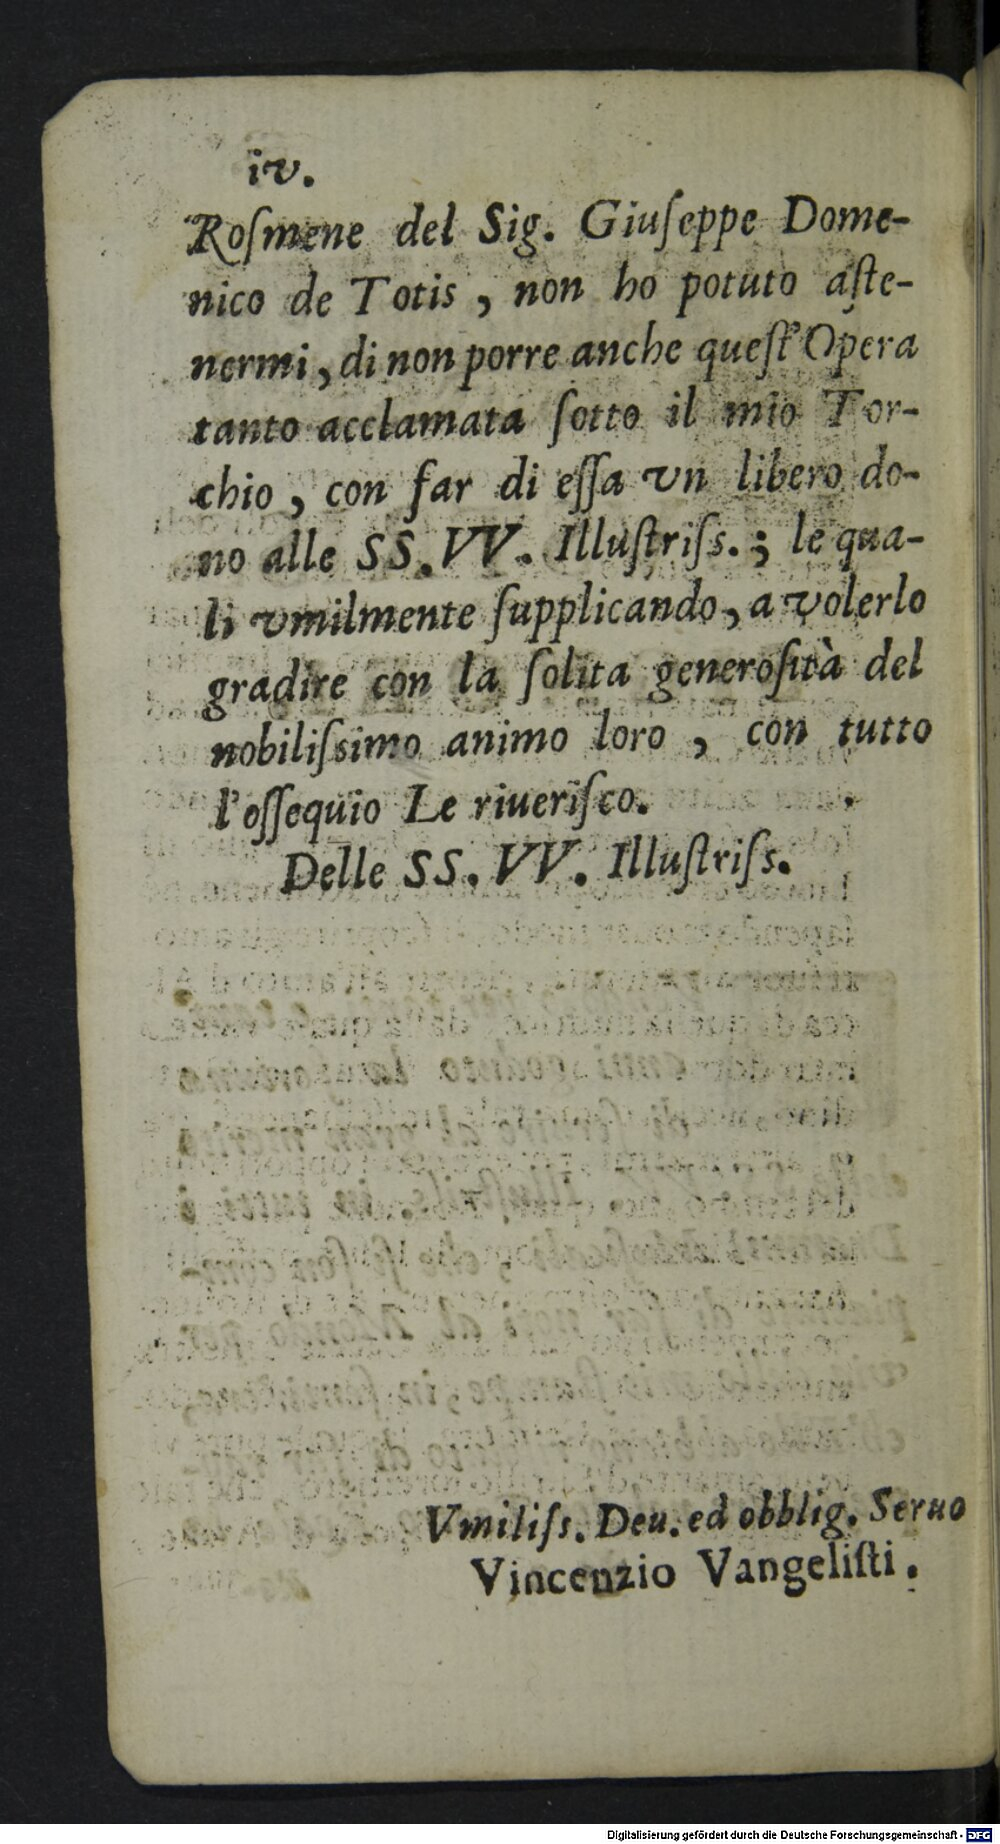 iv.
Roſmene del Sig. Giuſeppe Dome-
nico de Totis, non ho potuto aſte-
nermi, di non porre anche queſt'Opera
tanto acclamata ſotto il mio Tor-
chio, con far di eſſa vn libero do-
no alle SS. VV. Illuſtriſs.; le qua-
li vmilmente ſupplicando, a volerlo
gradire con la ſolita generoſità del
nobiliſsimo animo loro, con tutto
l'oſſequio Le riueriſco.
Delle SS. VV. Illuſtriſs.
Vmiliſs. Deu. ed obblig. Seruo
Vincenzio Vangeliſti.
Digitalisierung gefördert durch die Deutsche Forschungsgemeinschaft - DFG